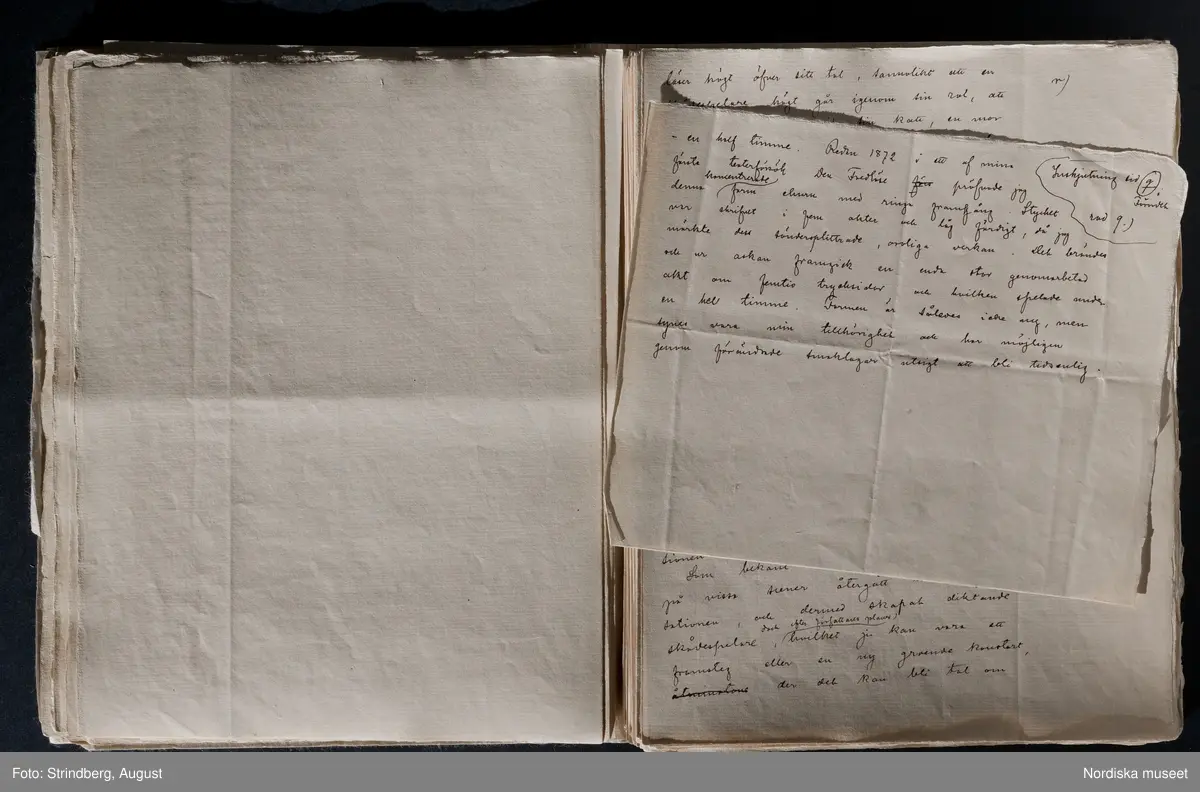 läser högt öfver sitt tal, sannolikt att en
högt går igenom sin rol, att
sin katt, en mor
r)
– en half timme. Redan 1872 i ett af mina
första teaterförsök Den Fredlöse för pröfvade jag
koncentrerade
denna form ehuru med ringa framgång. Stycket
var skrifvet i fem akter och låg färdigt, då jag
märkte dess söndersplittrade, oroliga verkan. Det brändes
och ur askan framgick en enda stor genomarbetad
akt om femtio trycksidor och hvilken spelade under
en hel timme. Formen är således icke ny, men
synes vara min tillhörighet och har möjligen
genom förändrade smaklagar utsigt att bli tidsenlig.
Inskjutning sid q
rad 9.)
sionen
Som bekant
på vissa scener återgått
sationen, och dermed skapat diktande
dock efter författarens planer
skådespelare, hvilket ju kan vara ett
framsteg eller en ny groende konstart,
åtminstone der det kan bli tal om
Foto: Strindberg, August
Nordiska museet